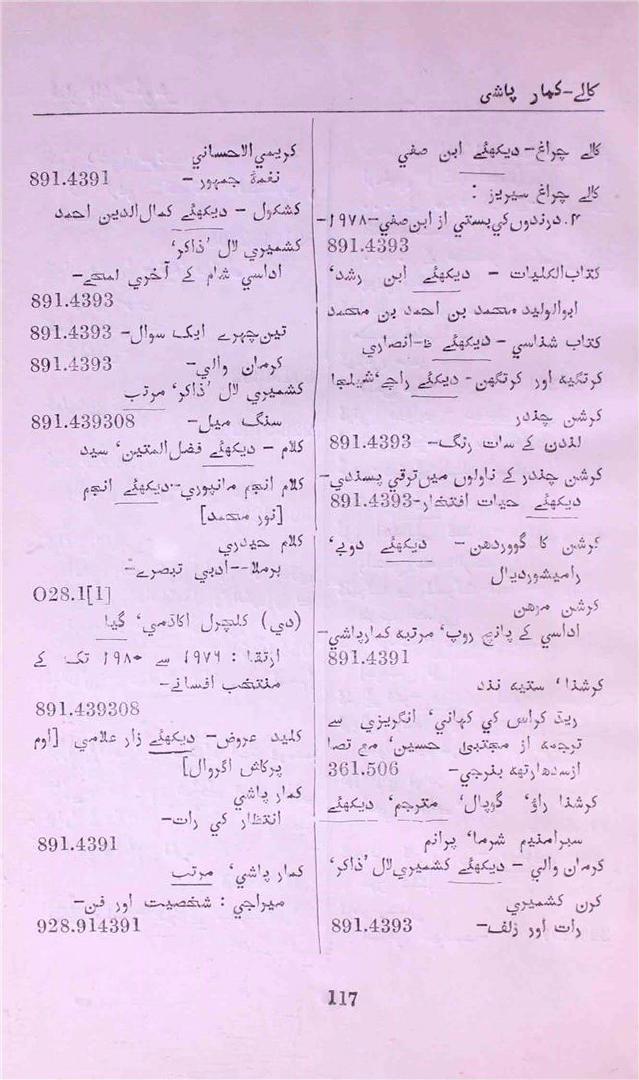 کالے-کمار پاشی
کالے چراغ- دیکھئے ابن صفی
کالے چراغ سیریز :
۴. درندوں کی بستی از ابن صفی-۱۹۷۸-
891.4393
کتاب الکلیات - دیکھئے ابن رشد،
ابوالولید محمد بن احمد بن محمد
کتاب شناسی - دیکھئے ظ-انصاری
کرتگیہ اور کرتگھن- دیکئے راجے،شیلجا
کرشن چندر
لندن کے سات رنگ- 891.4393
کرشن چندر کے ناولوں میں ترقی پسندی-
دیکھئے حیات افتخار-891.4393
کرشن کا گووردھن- دیکھئے دوبے،
رامیشوردیال
کرشن موہن
اداسی کے پانچ روپ، مرتبہ کمار پاشی-
891.4391
کرشنا، ستیہ نند
ریڈ کراس کی کہانی، انگریزی سے
ترجمہ از مجتبی حسین، مع تصا
ازسدھارتھ بنرجی- 361.506
کرشنا راؤ، گوپال، مترجم، دیکھئے
سبرامنیم شرما، پرانم
کرمان والی - دیکھئے کشمیری لال 'ذاکر'
کرن کشمیری
رات اور زلف- 891.4393
کریمی الاحسانی
نغمۂ جمہور- 891.4391
کشکول - دیکھئے کمال الدین احمد
کشمیری لال 'ذاکر'
اداسی شام کے آخری لمحے-
891.4393
تین چہرے ایک سوال- 891.4393
کرمان والی- 891.4393
کشمیری لال 'ذاکر' مرتب
سنگ میل- 891.439308
کلام - دیکھئے فضل المتین، سید
کلام انجم مانپوری--دیکھئے انجم
[نور محمد]
کلام حیدری
برملا--ادبی تبصرے-
O28.1[1]
(دی) کلچرل اکاڈمی، گیا
ارتقا : ۱۹۷۶ سے ۱۹۸۰ تک کے
منتخب افسانے-
891.439308
کلید عروض- دیکھئے زار علامی [اوم
پرکاش اگروال]
کمار پاشی
انتظار کی رات-
891.4391
کمار پاشی، مرتب
میراجی : شخصیت اور فن-
928.914391
117